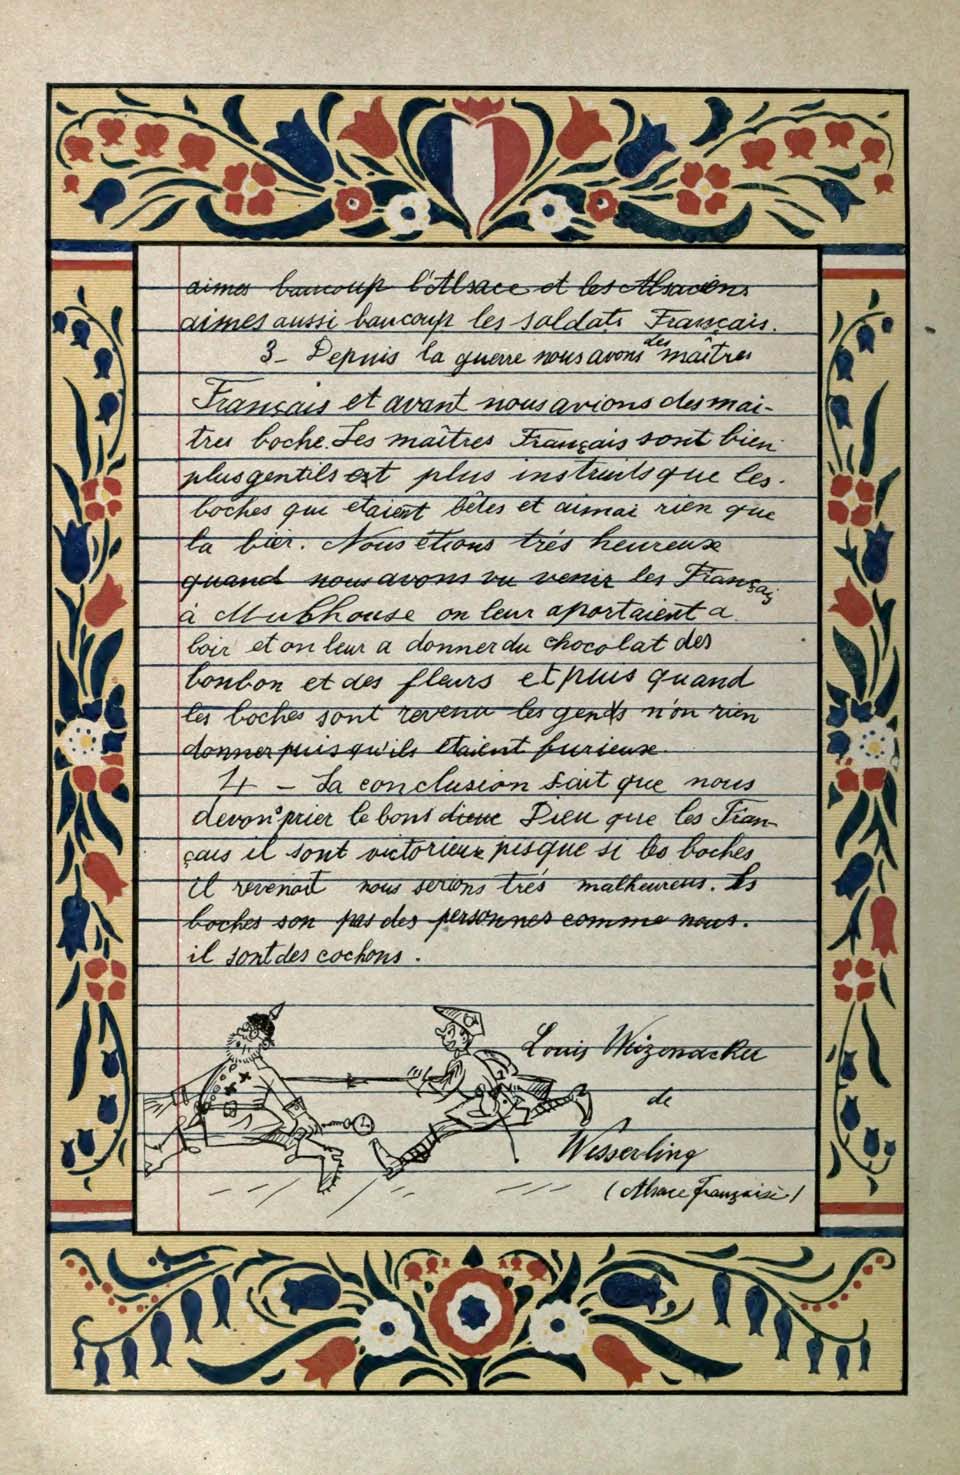 aimes baucoup l'Alsace et les Alsaciens
aimes aussi baucoup les soldats Français.
3 - Depuis la guerre nous avons des maîtres
Français et avant nous avions des mai-
tres boche. Les maîtres Français sont bien
plus gentils et plus instruits que les
boches qui etaient bêtes et aimai rien que
la bièr. Nous étions trés heureuse
quand nous avons vu venir les Françai
à Mulhouse on leur aportaient a
boir et on leur a donner du chocolat des
bonbon et des fleurs et puis quand
les boches sont revenu les gents n'on rien
donner puisqu'ils étaient furieuse.
4 - La conclusion sait que nous
devons prier le bons dieue Dieu que les Fran-
çais il sont victorieux pisque si les boches
il revenait nous serions trés malheureus. Les
boches son pas des personnes comme nous.
il sont des cochons.
Louis
de
Wesserling
(Alsace française)